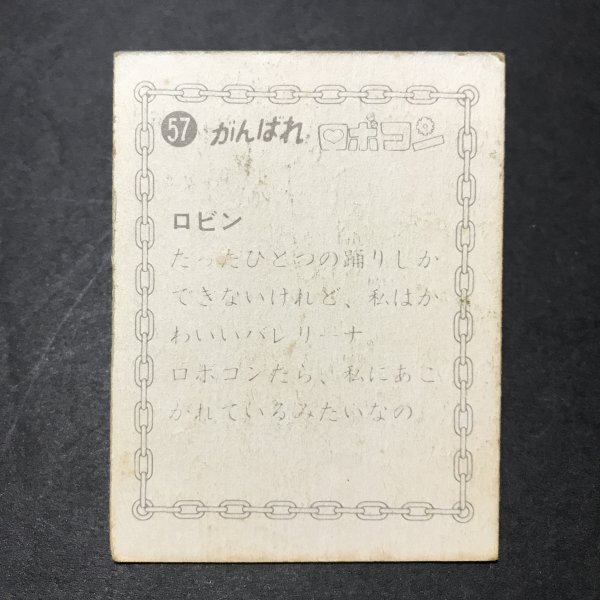 57 がんばれ ロボコン
ロビン
たったひとつの踊りしか
できないけれど、私はか
わいいバレリーナ。
ロボコンたら、私にあこ
がれているみたいなの